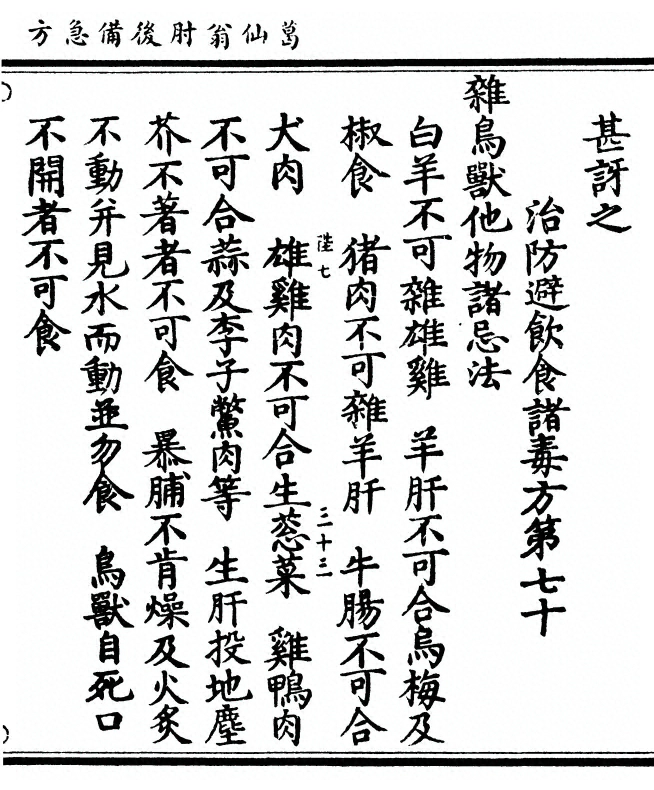 葛仙翁肘後備急方
甚訝之
治防避飲食諸毒方第七十
雜鳥獸他物諸忌法
白羊不可雜雄雞 羊肝不可合烏梅及
椒食 猪肉不可雜羊肝 牛腸不可合
犬肉 雄雞肉不可合生葱菜 雞鴨肉
不可合蒜及李子鱉肉等 生肝投地塵
芥不著者不可食 暴脯不肯燥及火炙
不動并見水而動並勿食 鳥獸自死口
不開者不可食
陸七
三十三